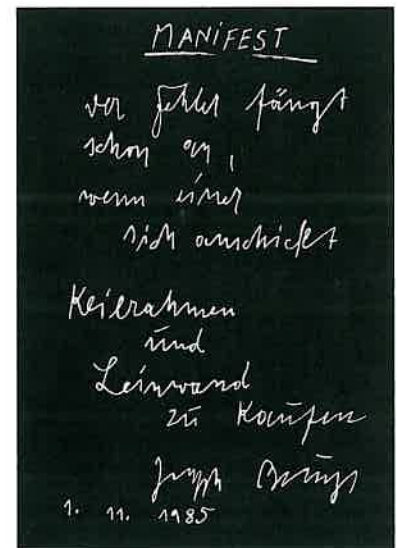 MANIFEST
der Fehler fängt
schon an,
wenn einer
sich anschickt
Keilrahmen
und
Leinwand
zu Kaufen
Joseph Beuys
1. 11. 1985